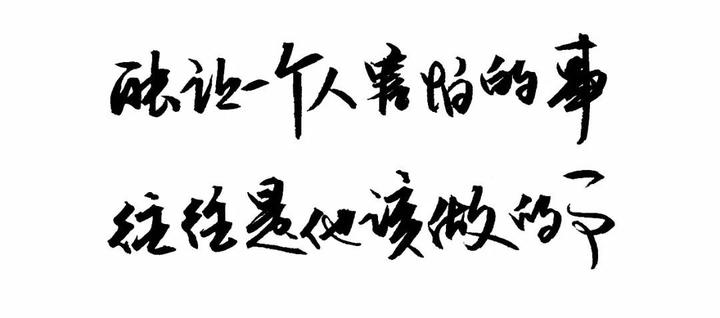 能让一个人害怕的事
往往是他该做的事